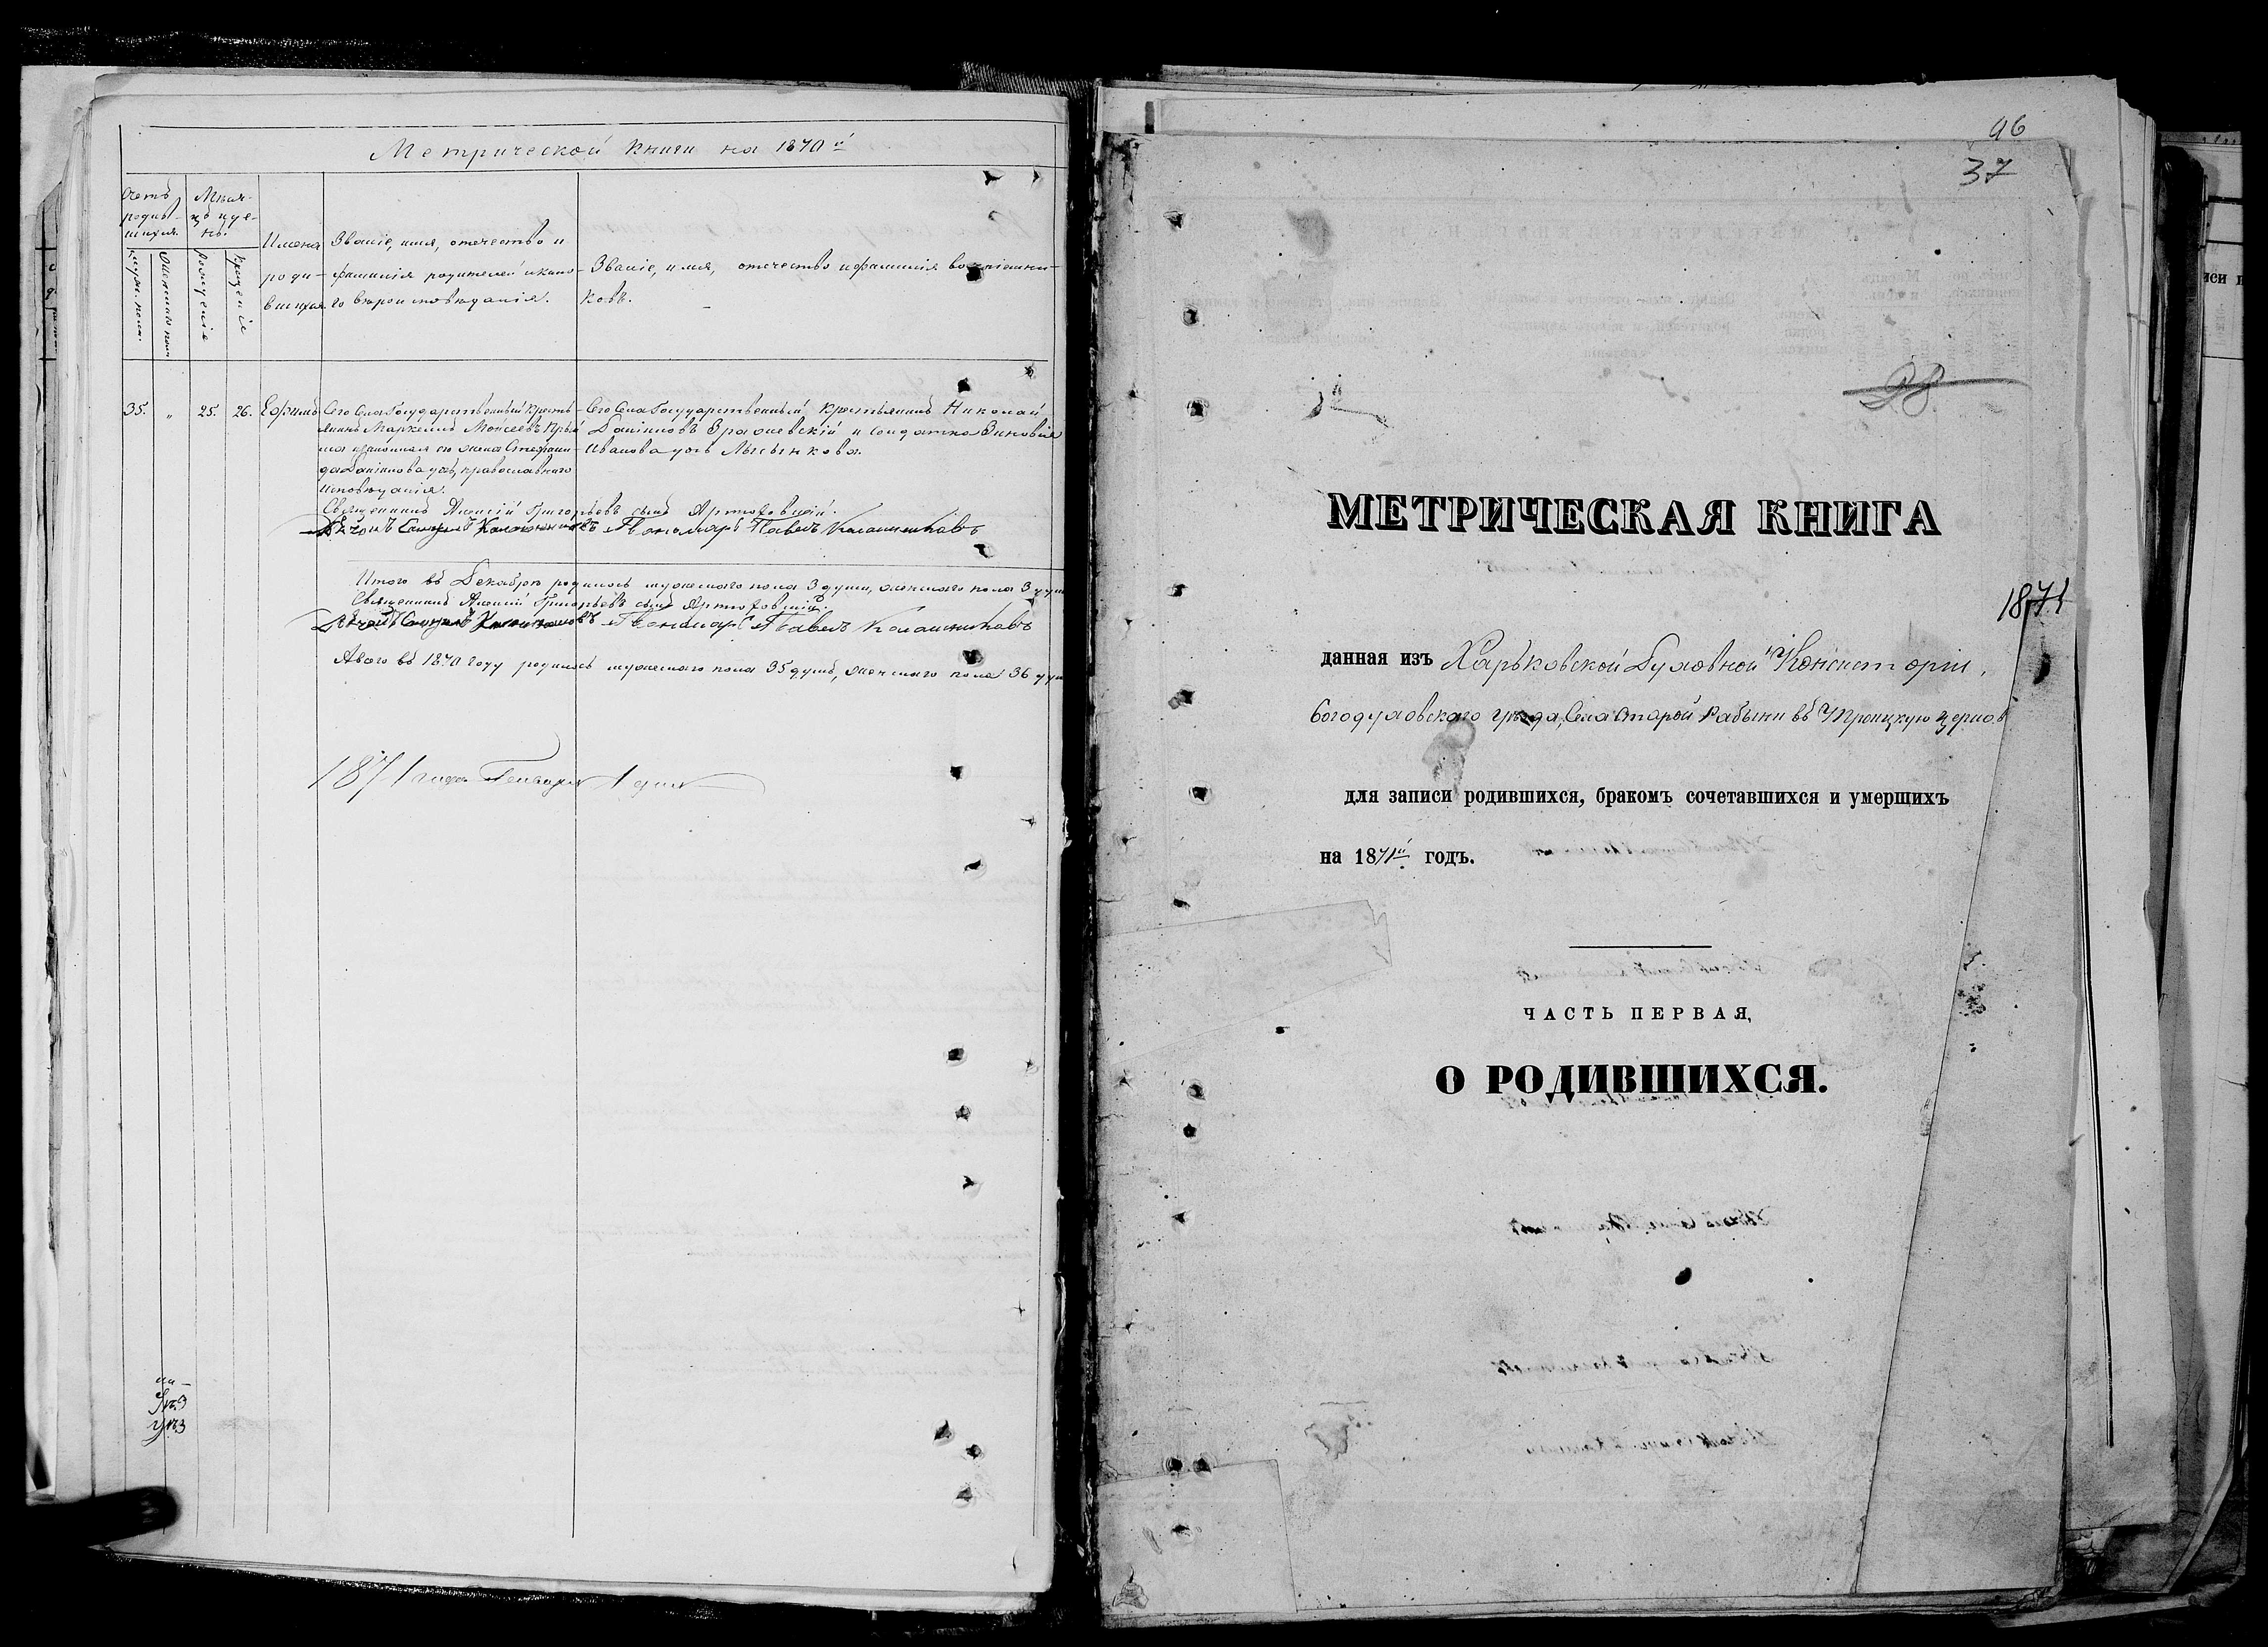 Метрической книги на 1870й
Счетъ
родив-
шихся.
Мѣся-
цъ и де-
нь.
мужс. пола.
Женскаго пола
рожденіе
крещеніе
Имена
роди-
вшихся
Званіе, имя, отечество и
фамилія родителей и како-
го вѣроисповѣданія.
Званіе, имя, отечество и фамилія воспріемни-
ковъ.
35. " 25. 26. Ефимъ
Сего Села Государственный Кресть-
янинъ Маркеллъ Моисеевъ
и законная его жена Стефани-
да Даніилова дочь, православнаго
исповѣданія.
Сего Села Государственный Крестьянинъ Николай
Даніиловъ Зражевскій и солдатка Зиновія
Иванова дочь Лысенкова.
Священникъ Алексій Григорьевъ сынъ Артюховскій.
Дьячокъ Калашниковъ Пономарь Павелъ Калашниковъ
Итого въ Декабрѣ родилось мужескаго пола 3 души, женскаго пола 3 души
Священникъ Алексій Григорьевъ сынъ Артюховскій.
Дьячокъ Калашниковъ Пономарь Павелъ Калашниковъ
А всего въ 1870 году родилось мужескаго пола 35 душъ, женскаго пола 36 душ
1871 года Генваря 1 дня
96
37
28
МЕТРИЧЕСКАЯ КНИГА
1871
данная изъ Харьковской Духовной Консисторіи,
Богодуховскаго уѣзда, Села Старой Рабыни въ Троицкую церков
для записи родившихся, бракомъ сочетавшихся и умершихъ
на 1871й годъ.
ЧАСТЬ ПЕРВАЯ,
О РОДИВШИХСЯ.